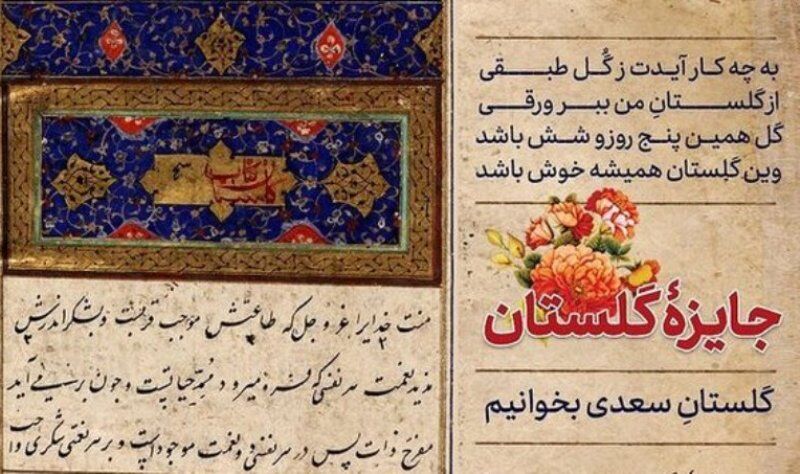 به چه کار آیدت ز گُل طبقی
از گلستانِ من ببر ورقی
گل همین پنج روز و شش باشد
وین گلِستان همیشه خوش باشد
جایزهٔ گلستان
گلستانِ سعدی بخوانیم
کتاب گلستان
منت خدایرا عز و جل که طاعتش موجب قربتست و بشکر اندرش
مزید نعمت هر نفسی که فرو میرود ممد حیاتست و چون بر می آید
مفرح ذات پس در هر نفسی دو نعمت موجود است و بر هر نعمتی شکری واجب